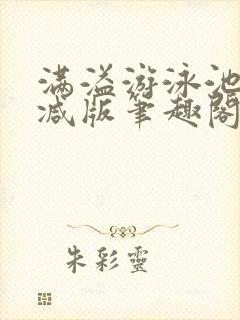 满溢游泳池
减版笔趣阁
朱彩靈